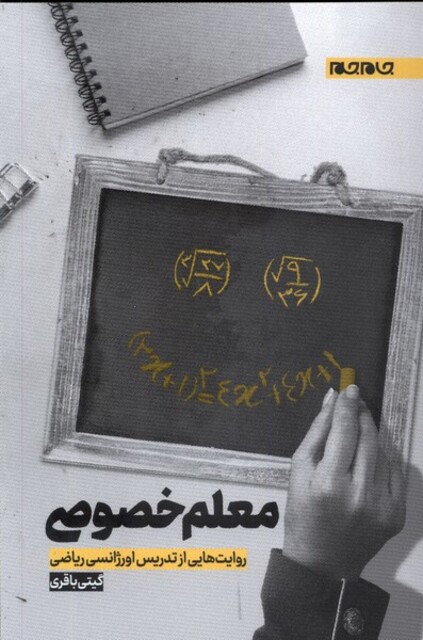 جام‌جم
(∛۲۷/۸) (√۹/۳۶)
(۲x+۱)^۲=۴x^۲+۴x+۱
معلم خصوصی
روایت‌هایی از تدریس اورژانسی ریاضی
گیتی باقری